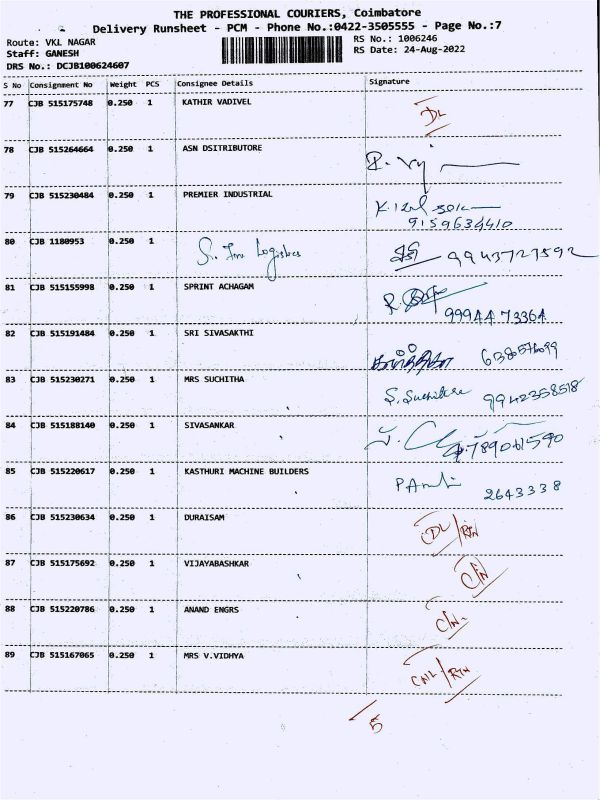 THE PROFESSIONAL COURIERS, Coimbatore
Delivery Runsheet - PCM - Phone No.:0422-3505555 - Page No.:7
Route: VKL NAGAR
Staff: GANESH
DRS No.: DCJB100624607
RS No.: 1006246
RS Date: 24-Aug-2022
S No Consignment No Weight PCS Consignee Details Signature
77 CJB 515175748 0.250 1 KATHIR VADIVEL DL
78 CJB 515264664 0.250 1 ASN DSITRIBUTORE
79 CJB 515230484 0.250 1 PREMIER INDUSTRIAL
9159634410
80 CJB 1180953 0.250 1 Logistics 9943727592
81 CJB 515155998 0.250 1 SPRINT ACHAGAM
99944 73364
82 CJB 515191484 0.250 1 SRI SIVASAKTHI
83 CJB 515230271 0.250 1 MRS SUCHITHA S. Suchitra 9942358518
84 CJB 515188140 0.250 1 SIVASANKAR
85 CJB 515220617 0.250 1 KASTHURI MACHINE BUILDERS 2643338
86 CJB 515230634 0.250 1 DURAISAM DL/RTN
87 CJB 515175692 0.250 1 VIJAYABASHKAR C/N
88 CJB 515220786 0.250 1 ANAND ENGRS C/N
89 CJB 515167065 0.250 1 MRS V.VIDHYA CNL/RTN
5